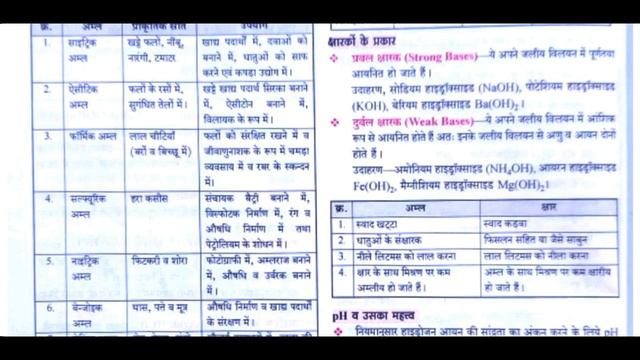 क्र. अम्ल प्राकृतिक स्रोत उपयोग
1. साइट्रिक अम्ल खट्टे फलों, नींबू, नारंगी, टमाटर खाद्य पदार्थों में, दवाओं को बनाने में, धातुओं को साफ करने एवं कपड़ा उद्योग में।
2. ऐसीटिक अम्ल फलों के रसों में, सुगंधित तेलों में। खट्टे खाद्य पदार्थ सिरका बनाने में, ऐसीटोन बनाने में, विलायक के रूप में।
3. फॉर्मिक अम्ल लाल चीटियाँ (बर्रे व बिच्छू में) फलों को संरक्षित रखने में व जीवाणुनाशक के रूप में चमड़ा व्यवसाय में व रबर के स्कन्दन में।
4. सल्फ्यूरिक अम्ल हरा कसीस संचायक बैट्री बनाने में, विस्फोटक निर्माण में, रंग व औषधि निर्माण में तथा पेट्रोलियम के शोधन में।
5. नाइट्रिक अम्ल फिटकरी व शोरा फोटोग्राफी में, अम्लराज बनाने में, औषधि व उर्वरक बनाने में।
6. बेन्जोइक अम्ल घास, पत्ते व मूत्र औषधि निर्माण व खाद्य पदार्थों के संरक्षण में।
क्षारकों के प्रकार
❖ प्रबल क्षारक (Strong Bases)—ये अपने जलीय विलयन में पूर्णतया
आयनित हो जाते हैं।
उदाहरण, सोडियम हाइड्रॉक्साइड (NaOH), पोटैशियम हाइड्रॉक्साइड
(KOH), बेरियम हाइड्रॉक्साइड Ba(OH)₂।
❖ दुर्बल क्षारक (Weak Bases)—ये अपने जलीय विलयन में आंशिक
रूप से आयनित होते हैं अतः इनके जलीय विलयन से अणु व आयन दोनों
होते हैं।
उदाहरण—अमोनियम हाइड्रॉक्साइड (NH₄OH), आयरन हाइड्रॉक्साइड
Fe(OH)₂, मैग्नीशियम हाइड्रॉक्साइड Mg(OH)₂।
क्र. अम्ल क्षार
1. स्वाद खट्टा स्वाद कडवा
2. धातुओं के संक्षारक फिसलन सहित या जैसे साबुन
3. नीले लिटमस को लाल करना लाल लिटमस को नीला करना
4. क्षार के साथ मिश्रण पर कम अम्लीय हो जाते हैं। अम्ल के साथ मिश्रण पर कम क्षारीय हो जाते हैं।
pH व उसका महत्त्व
❖ नियमानुसार हाइड्रोजन आयन की सांद्रता का अंकन करने के लिए pH